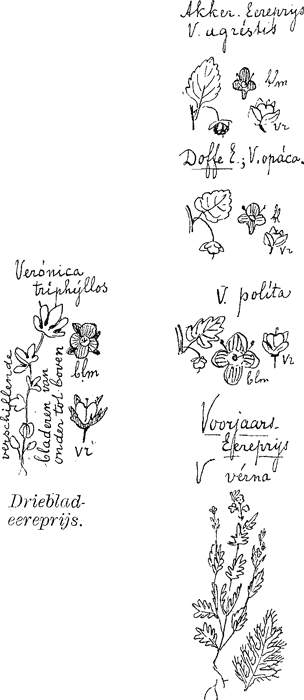 Akker. Eereprijs
V. agréstis
blm
vr
Doffe E., V. opáca.
k
vr
Verónica
triphýllos
verschillende
bladeren van
onder tot boven
blm
vr
Drieblad-
eereprijs.
V. políta
blm
vr
Voorjaars-
Eereprijs
V vérna